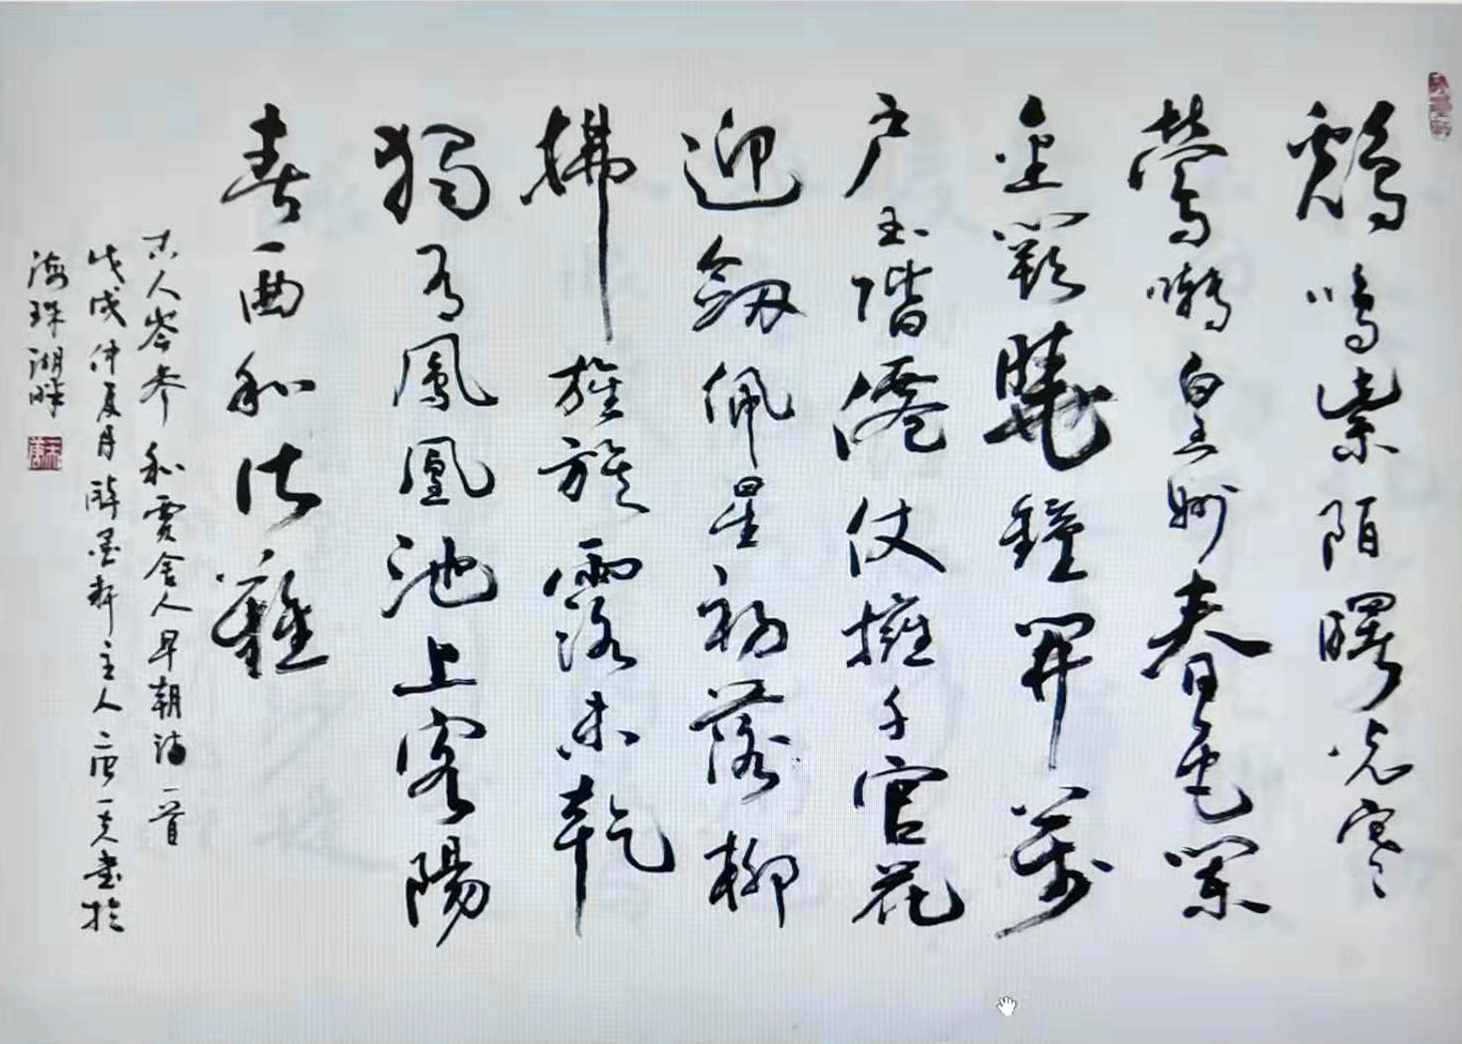 鷄鳴紫陌曙光寒
鶯囀皇州春色闌
金闕曉鐘開萬
户玉階僊仗擁千官花
迎劔佩星初落柳
拂旌旗露未乾
獨有鳳凰池上客陽
春一曲和皆難
古人岑参和賈舍人早朝詩一首
戊戌仲夏月醉墨軒主人唐一夫書於
海珠湖畔